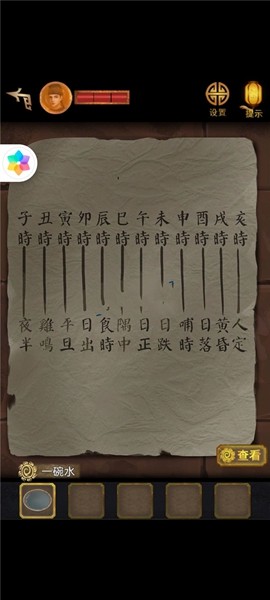 设置 提示
子 丑 寅 卯 辰 巳 午 未 申 酉 戌 亥
時 時 時 時 時 時 時 時 時 時 時 時
夜 雞 平 日 食 隅 日 日 哺 日 黄 人
半 鳴 旦 出 時 中 正 跌 時 落 昏 定
查看
一碗水